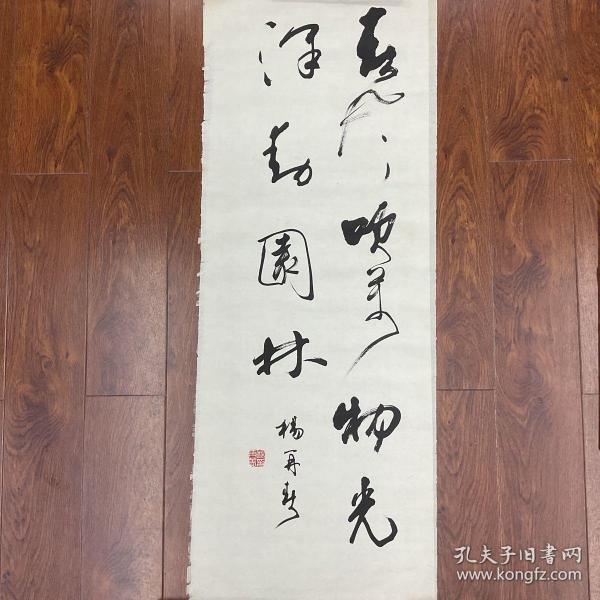 萬物光
澤動園林
楊再春
孔夫子旧書网
www.kongfz.com